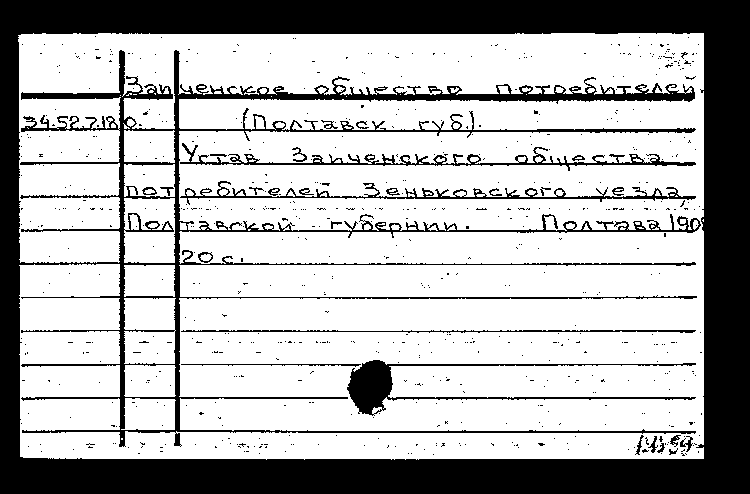 Заиченское общество потребителей.
34.52.7.180. (Полтавск. губ.).
Устав Заиченского общества
потребителей Зеньковского уезда,
Полтавской губернии. Полтава, 1908
20 с.